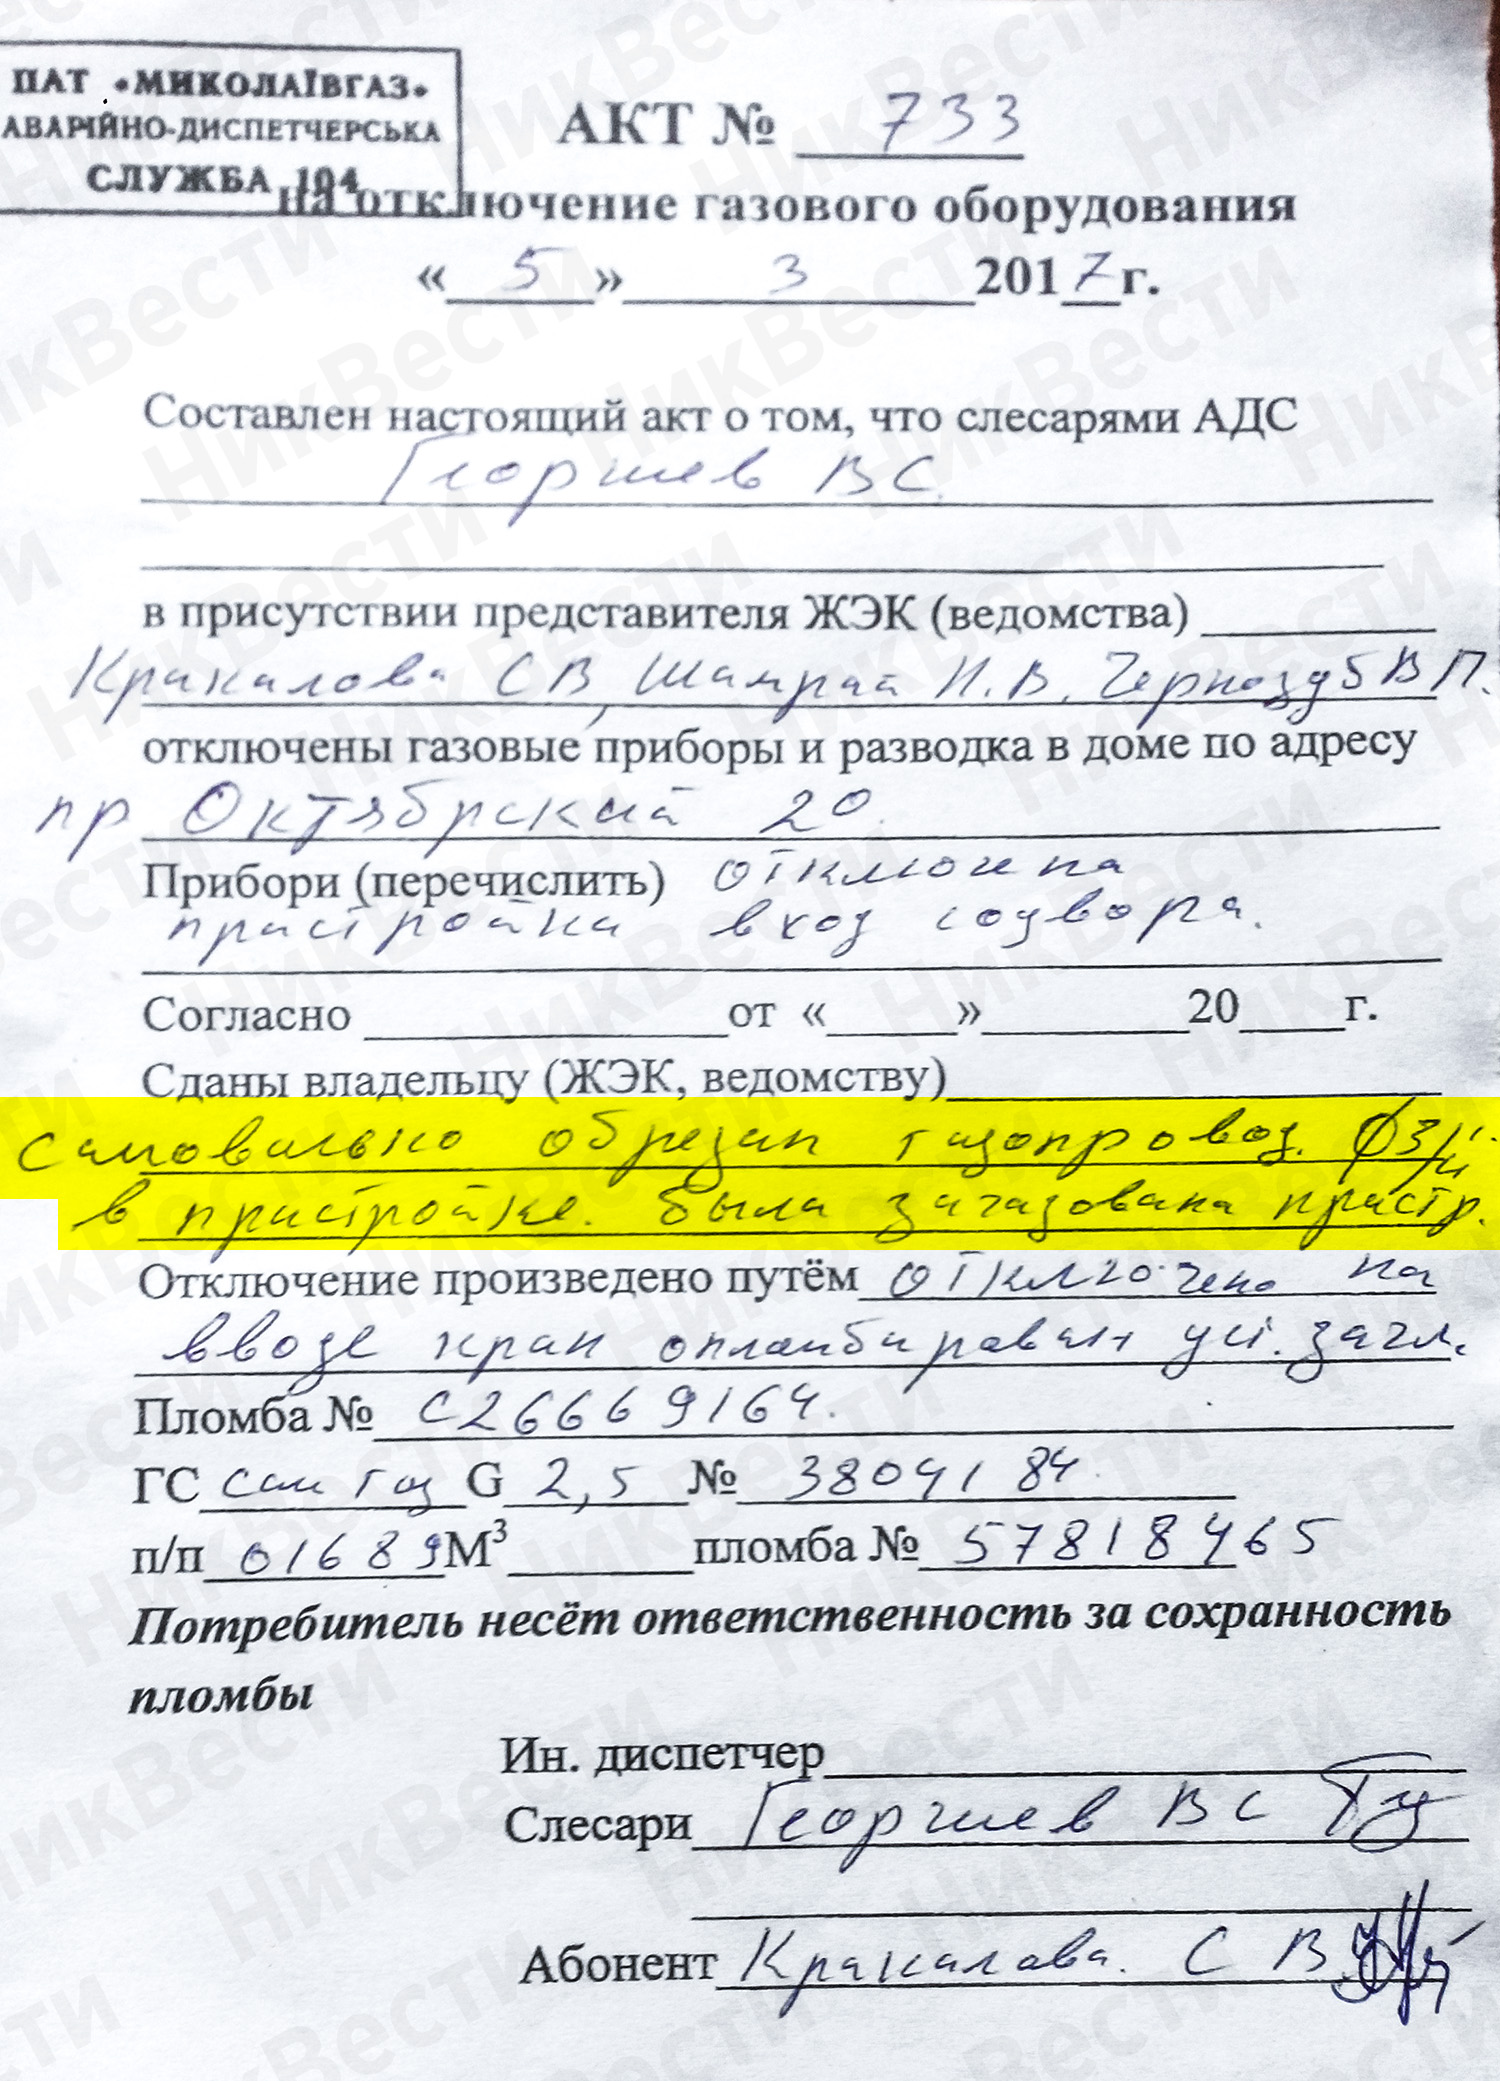 ПАТ «МИКОЛАЇВГАЗ»
АВАРІЙНО-ДИСПЕТЧЕРСЬКА
СЛУЖБА 104
АКТ № 733
на отключение газового оборудования
« 5 » 3 2017 г.
Составлен настоящий акт о том, что слесарями АДС
Георгиев В С.
в присутствии представителя ЖЭК (ведомства)
Кракалова С В, Шамрай И. В. Чернозуб В П.
отключены газовые приборы и разводка в доме по адресу
пр Октябрский 20.
Прибори (перечислить) отключена
пристройка вход со двора.
Согласно от « » 20 г.
Сданы владельцу (ЖЭК, ведомству)
Самовольно обрезан газопровод.
в пристройке. была загазована пристр.
Отключение произведено путём отключено на
вводе кран опломбирован уст. загл.
Пломба № С26669164.
ГС самгаз G 2,5 № 38041 84.
п/п 01689 М³ пломба № 57818465
Потребитель несёт ответственность за сохранность
пломбы
Ин. диспетчер
Слесари Георгиев В С
Абонент Кракалова. С В.
НикВести